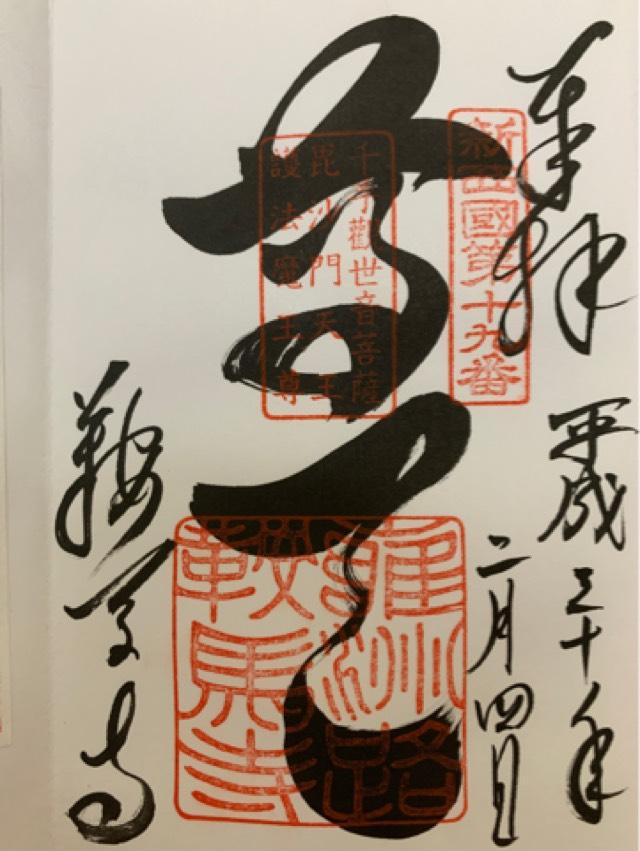 奉拝
平成三十年
二月四日
新西國第十九番
千手觀世音菩薩
毘沙門天王
護法魔王尊
雍州路
鞍馬寺
鞍馬寺